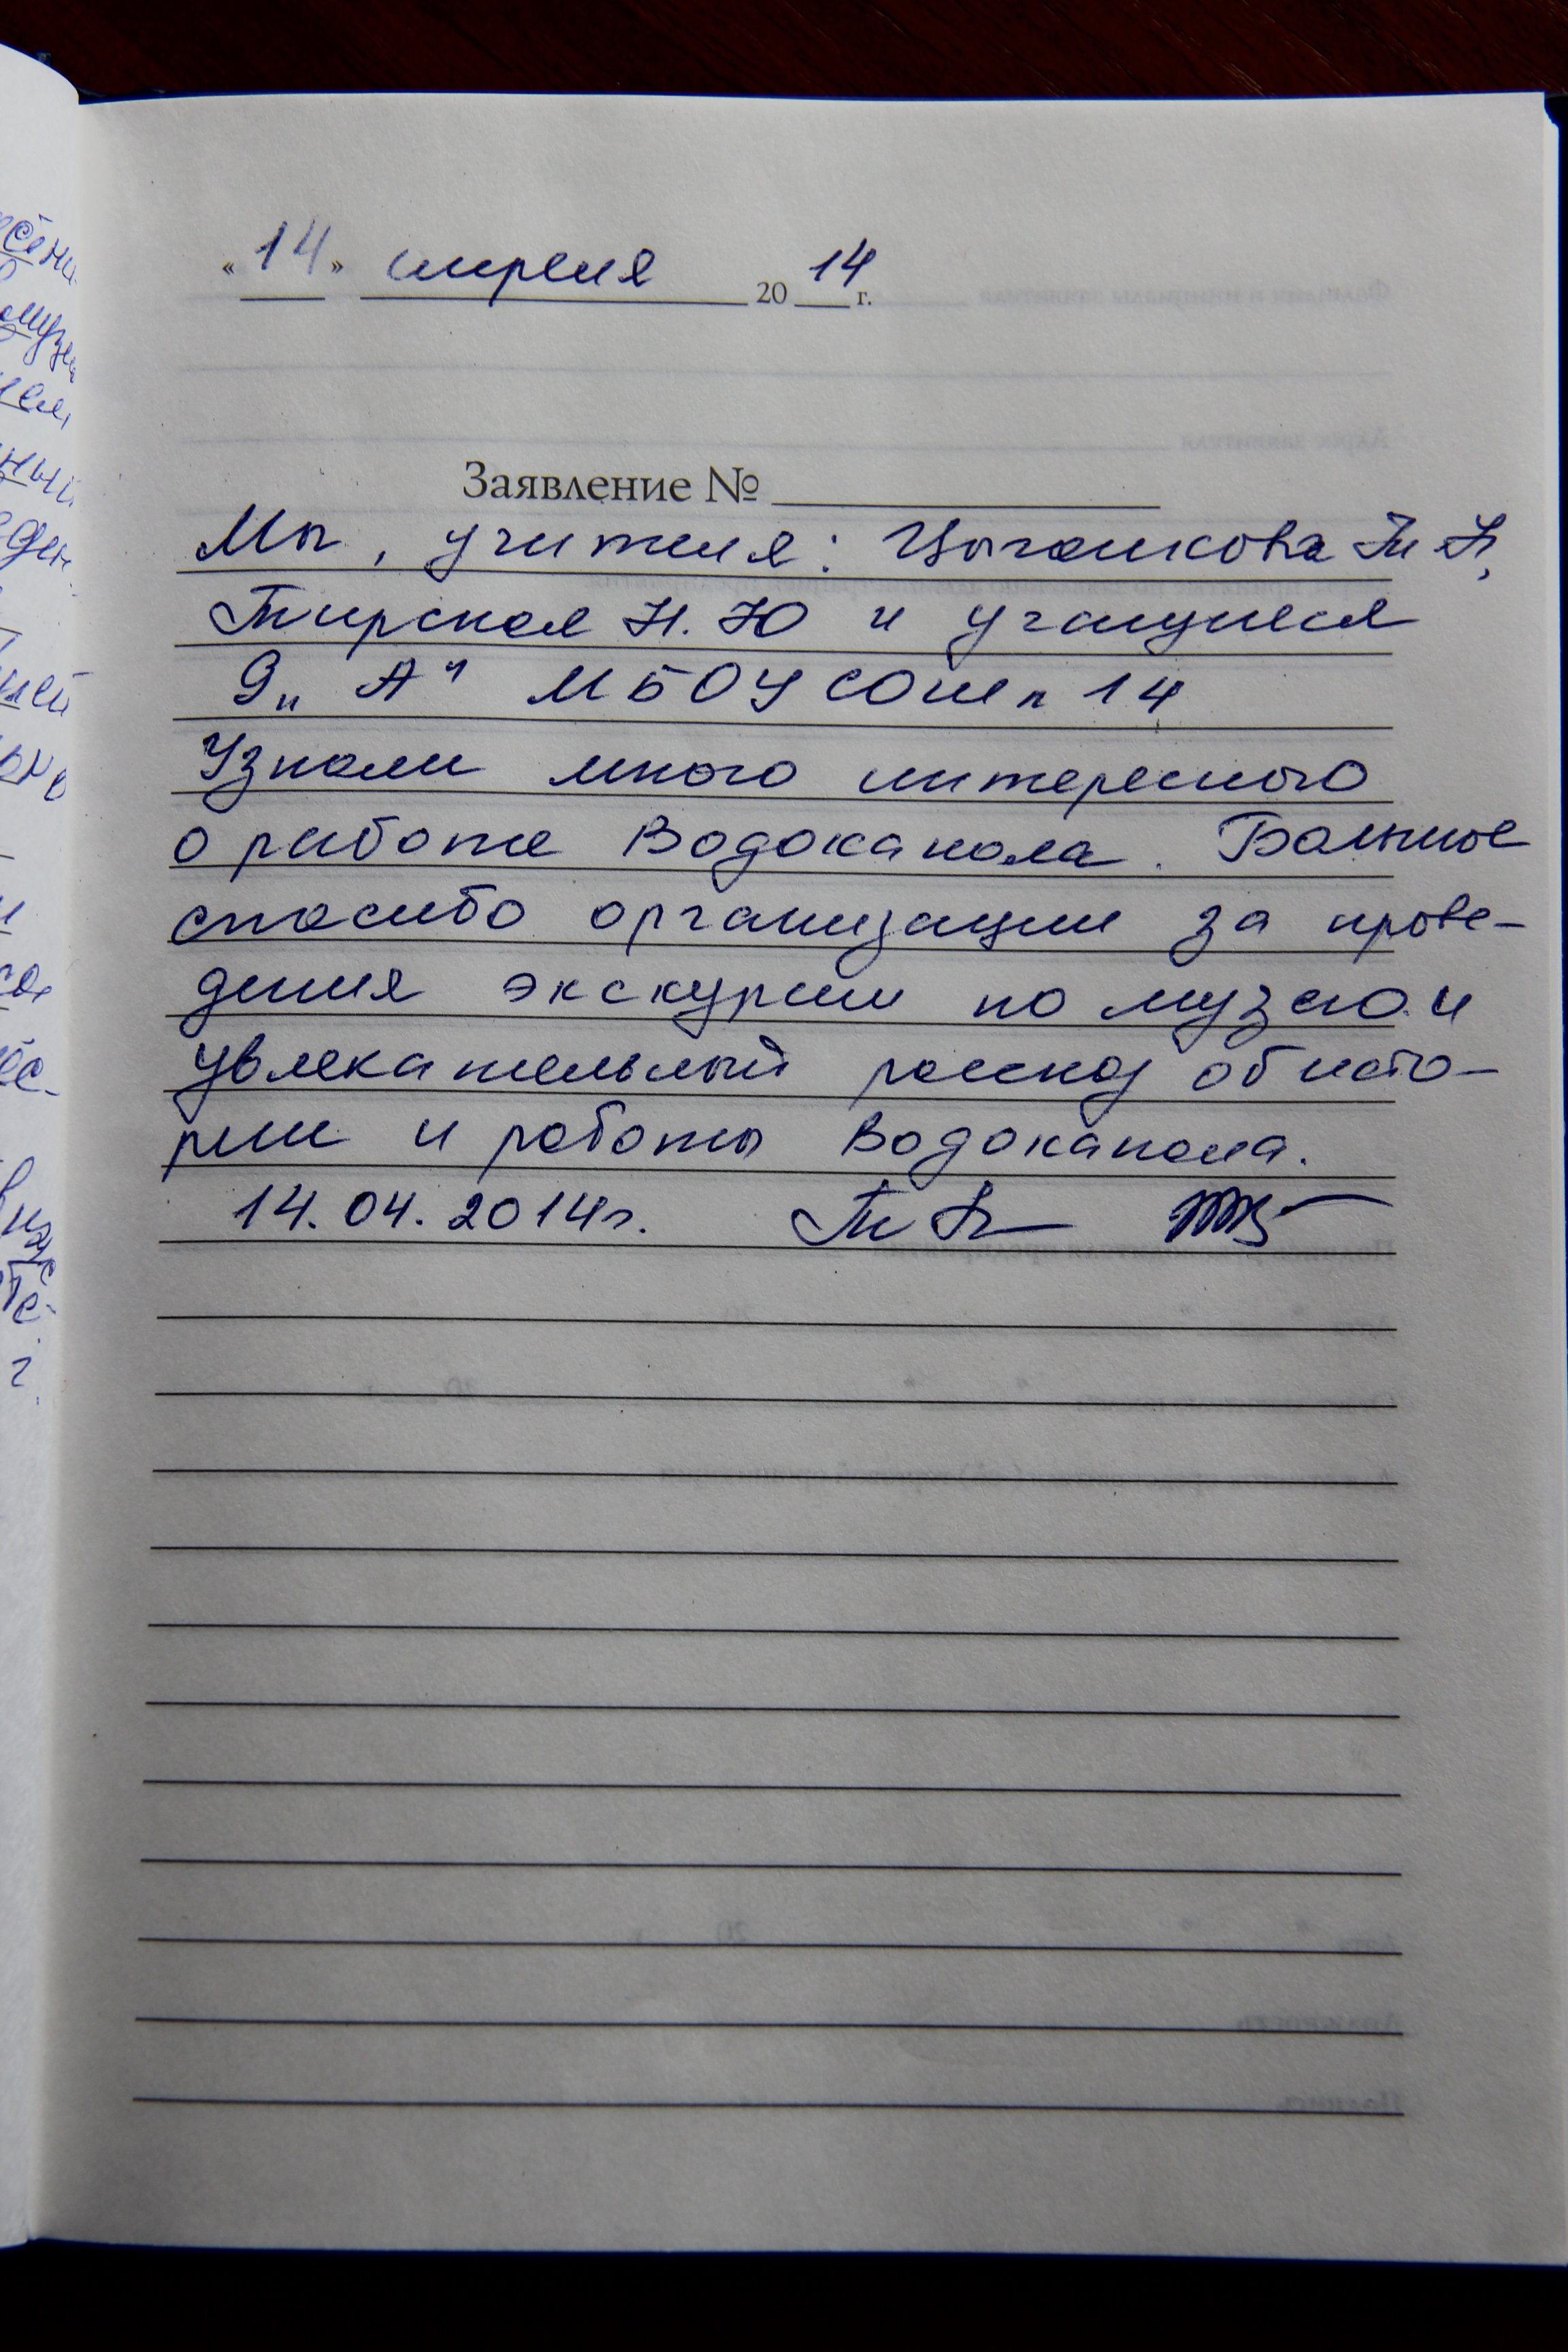 «14» апреля 2014 г.
Заявление №
Мы, учителя: Цыганкова Т. А,
Тирская Н. Ю и учащиеся
9 „А“ МБОУ СОШ 14
Узнали много интересного
о работе Водоканала. Большое
спасибо организации за прове-
дения экскурсии по музею и
увлекательный рассказ об исто-
рии и работы Водоканала.
14.04.2014г.